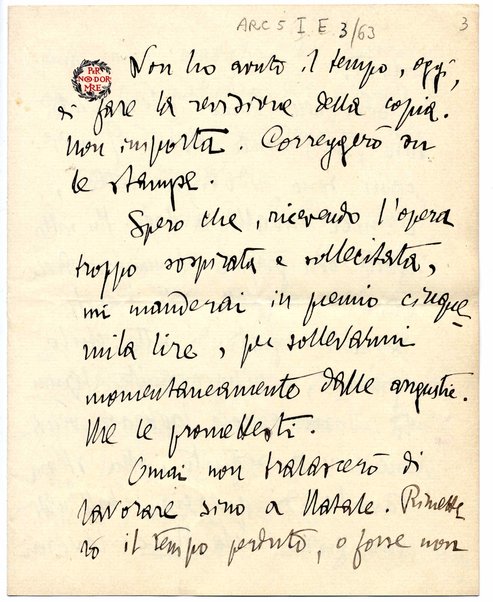 ARC 5 I E 3/63
3
PER
NON DOR
MIRE
Non ho avuto il tempo, oggi,
di fare la revisione della copia.
Non importa. Correggerò su
le stampe.
Spero che, ricevendo l'opera
troppo sospirata e sollecitata,
mi manderai in premio cinque-
mila lire, per sollevarmi
momentaneamente dalle angustie.
Me le promettesti.
Omai non tralascerò di
lavorare sino a Natale. Rimette-
rò il tempo perduto, o forse non